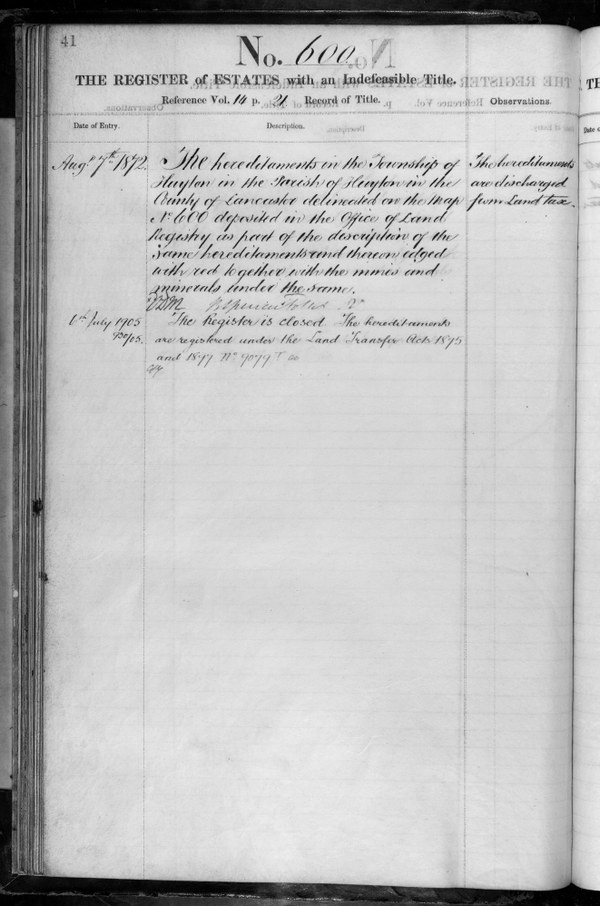 41
No. 600
THE REGISTER of ESTATES with an Indefeasible Title.
Reference Vol. 14 p. 21 Record of Title.
Observations.
Date of Entry.
Description.
Augt 7th 1872.
The hereditaments in the Township of
Huyton in the Parish of Huyton in the
County of Lancaster delineated on the Map
No 600 deposited in the Office of Land
Registry as part of the description of the
Same hereditaments and thereon edged
with red together with the mines and
minerals under the same.
The hereditaments
are discharged
from Land tax.
July 1905
The Register is closed The hereditaments
are registered under the Land Transfer Acts 1875
and 1897 No